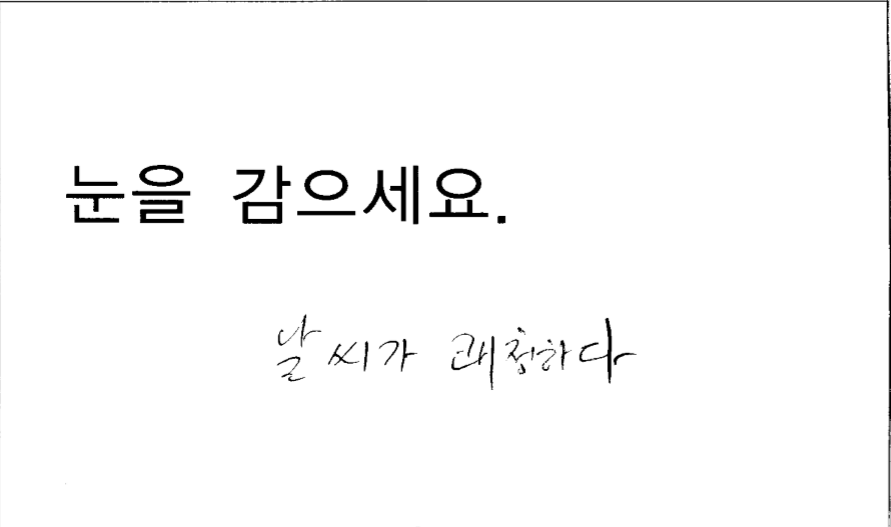 눈을 감으세요.
날씨가 쾌청하다